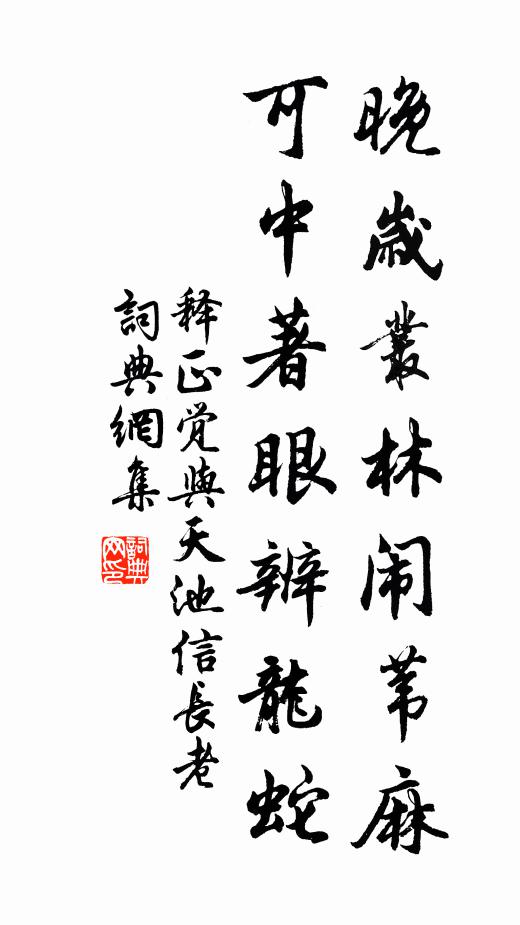 晚歲叢林闹苇麻
可中著眼辨龍蛇
释正觉與天池信長老
詞典網集
詞典网印